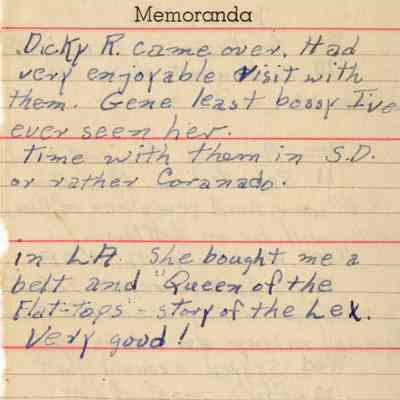 Memoranda
Dicky R. came over. Had
very enjoyable visit with
them. Gene least bossy I've
ever seen her.
time with them in S.D.
or rather Coranado.
in L.A. She bought me a
belt and "Queen of the
Flat-tops" - story of the Lex.
Very good!